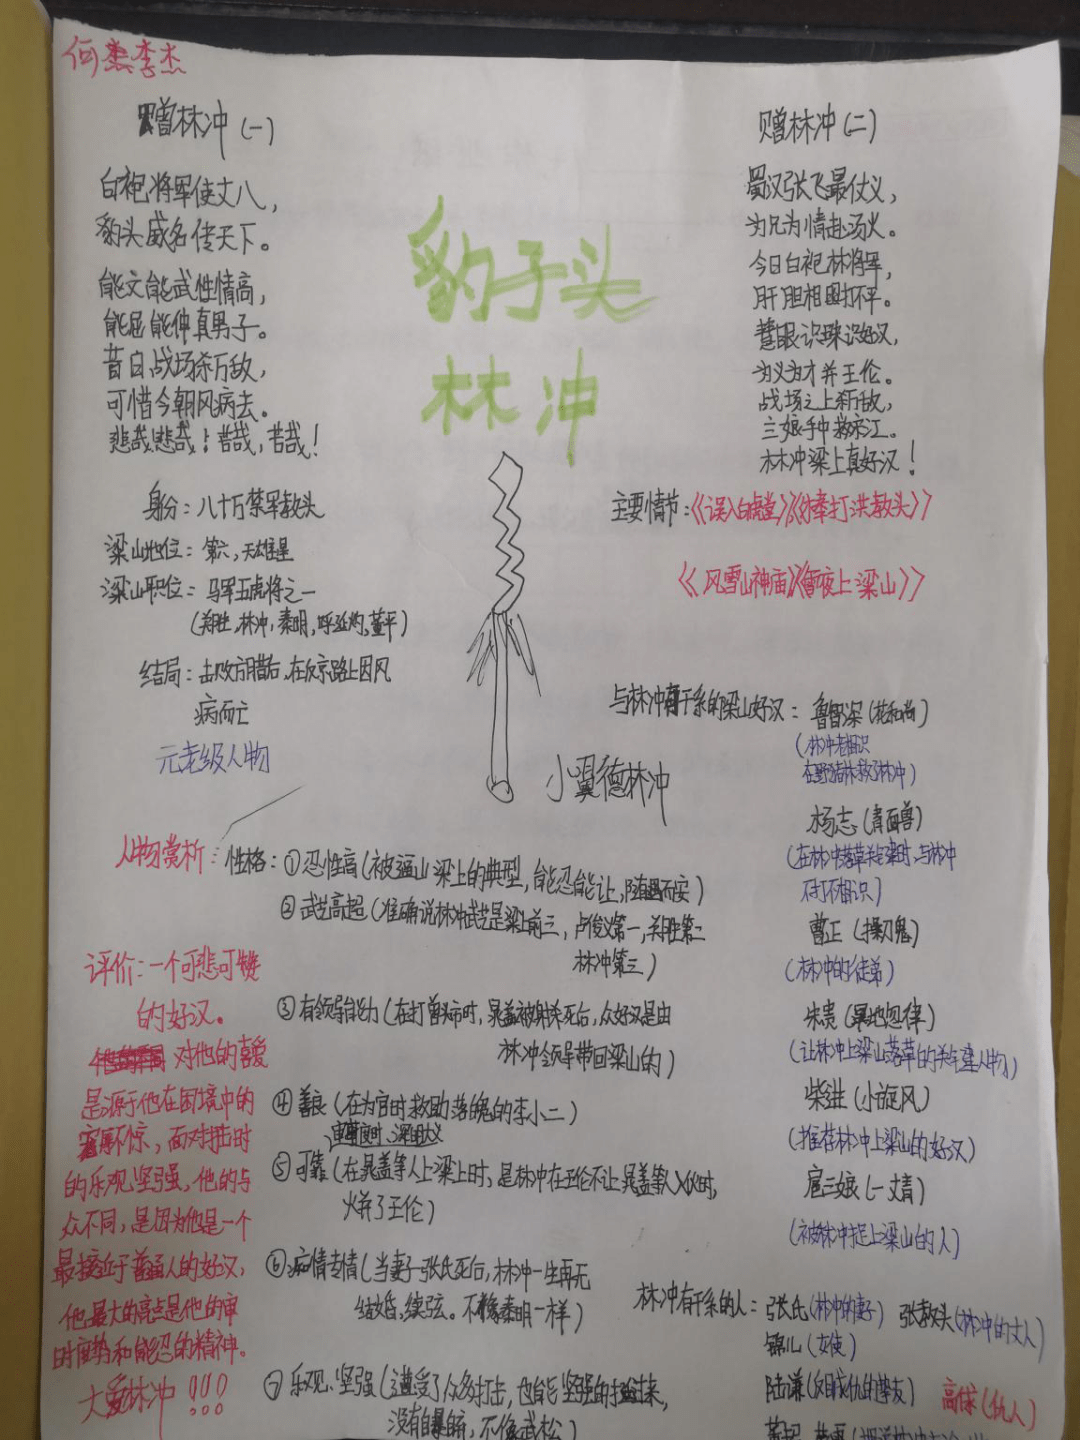 何燕李杰
赠林冲(一)
白袍将军使丈八，
豹头威名传天下。
能文能武性情高，
能屈能伸真男子。
昔日战场杀万敌，
可惜今朝风病去。
悲哉,悲哉！苦哉,苦哉！
豹子头
林冲
赠林冲(二)
蜀汉张飞最仗义，
为兄为情赴汤火。
今日白袍林将军，
肝胆相照打不平。
慧眼识珠识好汉，
为义为才并王伦。
战场之上斩敌，
三娘手中救宋江。
林冲梁上真好汉！
身份：八十万禁军教头
梁山地位：第六，天雄星
梁山职位：马军五虎将之一
(关胜,林冲,秦明,呼延灼,董平)
结局：击败方腊后,在反京路上因风
病而亡
元老级人物
主要情节：《误入白虎堂》《棒打洪教头》
《风雪山神庙》《雪夜上梁山》
小翼德林冲
与林冲有干系的梁山好汉：鲁智深(花和尚)
(林冲老相识
在野猪林救了林冲)
杨志(青面兽)
(在林冲落草关键时,与林冲
不打不相识)
曹正(操刀鬼)
(林冲的徒弟)
朱贵(旱地忽律)
(让林冲上梁山落草的关键人物)
柴进(小旋风)
(推荐林冲上梁山的好汉)
扈三娘(一丈青)
(被林冲捉上梁山的人)
林冲有干系的人：张氏(林冲的妻子) 张教头(林冲的丈人)
锦儿(女使)
陆谦(反目成仇的挚友) 高俅(仇人)
人物赏析：性格：①忍性高(被逼山梁上的典型,能忍能让,随遇而安)
②武艺高超(准确说林冲武艺是梁上前三,卢俊义第一,关胜第二
林冲第三)
③有领导能力(在打曾头市时,晁盖被射杀死后,众好汉是由
林冲领导带回梁山的)
④善良(在为官时救助落魄的李小二)
审时度时、深明大义
⑤可靠(在晁盖等人上梁上时,是林冲在王伦不让晁盖等入伙时,
火并了王伦)
⑥痴情专情(当妻子张氏死后,林冲一生再无
结婚,续弦。不像秦明一样)
⑦乐观、坚强(遭受了众多打击,也能坚强的挺过来,
没有自暴自弃,不像武松)
评价：一个可悲可赞
的好汉。
对他的喜爱
是源于他在困境中的
宠辱不惊，面对打击时
的乐观坚强,他的与
众不同,是因为他是一个
最接近于普通人的好汉,
他最大的亮点是他的审
时度势和能忍的精神。
大爱林冲!!!